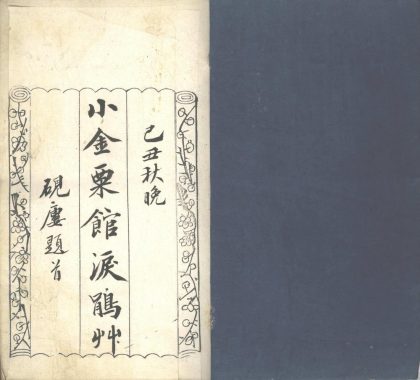 己丑秋晚
小金粟館淚鵑艸
硯廔題首